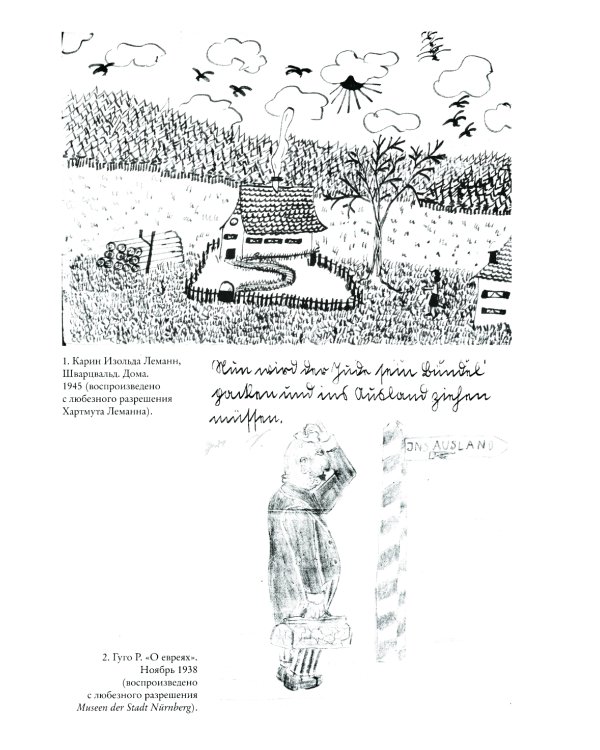 1. Карин Изольда Леманн,
Шварцвальд. Дома.
1945 (воспроизведено
с любезного разрешения
Хартмута Леманна).
Nun wird der Jude sein Bündel
packen und ins Ausland ziehen
müssen.
INS AUSLAND
2. Гуго Р. «О евреях».
Ноябрь 1938
(воспроизведено
с любезного разрешения
Museen der Stadt Nürnberg).